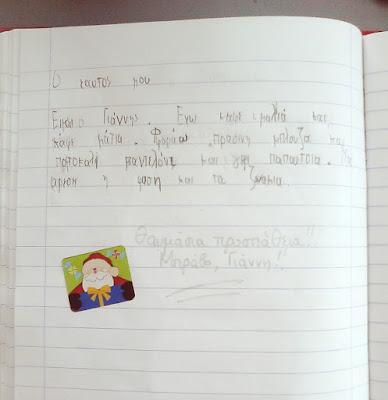 Ο εαυτός μου
Είμαι ο Γιάννης. Έχω μαλλιά και
καφέ μάτια. Φοράω πράσινη μπλούζα και
πορτοκαλί παντελόνι και παπούτσια. Μου
αρεση η φυση και τα ζωακια.
Θαυμάσια προσπάθεια!!
Μπράβο, Γιάννη!